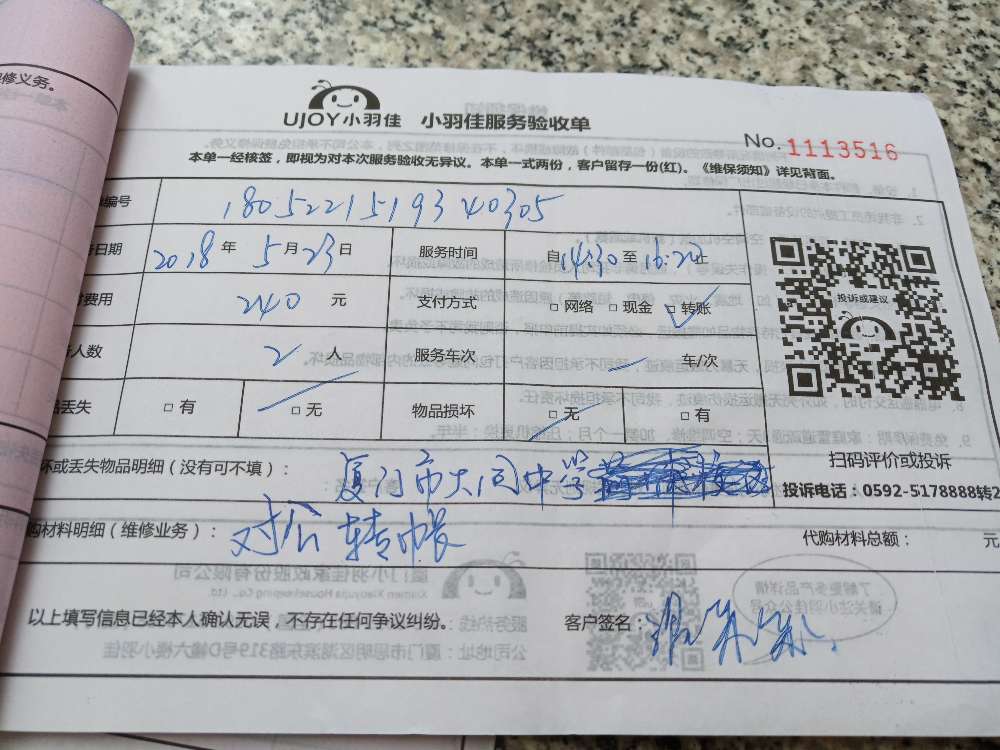 修义务。
UJOY小羽佳 小羽佳服务验收单
No. 1113516
本单一经核签，即视为对本次服务验收无异议。本单一式两份，客户留存一份(红)。《维保须知》详见背面。
编号 1805221519340305
日期 2018 年 5 月 23 日 服务时间 自 14:30 至 16:24 止
费用 240 元 支付方式 □ 网络 □ 现金 □ 转账
人数 2 人 服务车次 车/次
丢失 □ 有 □ 无 物品损坏 □ 无 □ 有
投诉或建议
扫码评价或投诉
投诉电话：0592-5178888转2
坏或丢失物品明细（没有可不填）： 厦门市大同中学
购材料明细（维修业务）： 对公转帐 代购材料总额： 元
以上填写信息已经本人确认无误，不存在任何争议纠纷。 客户签名：